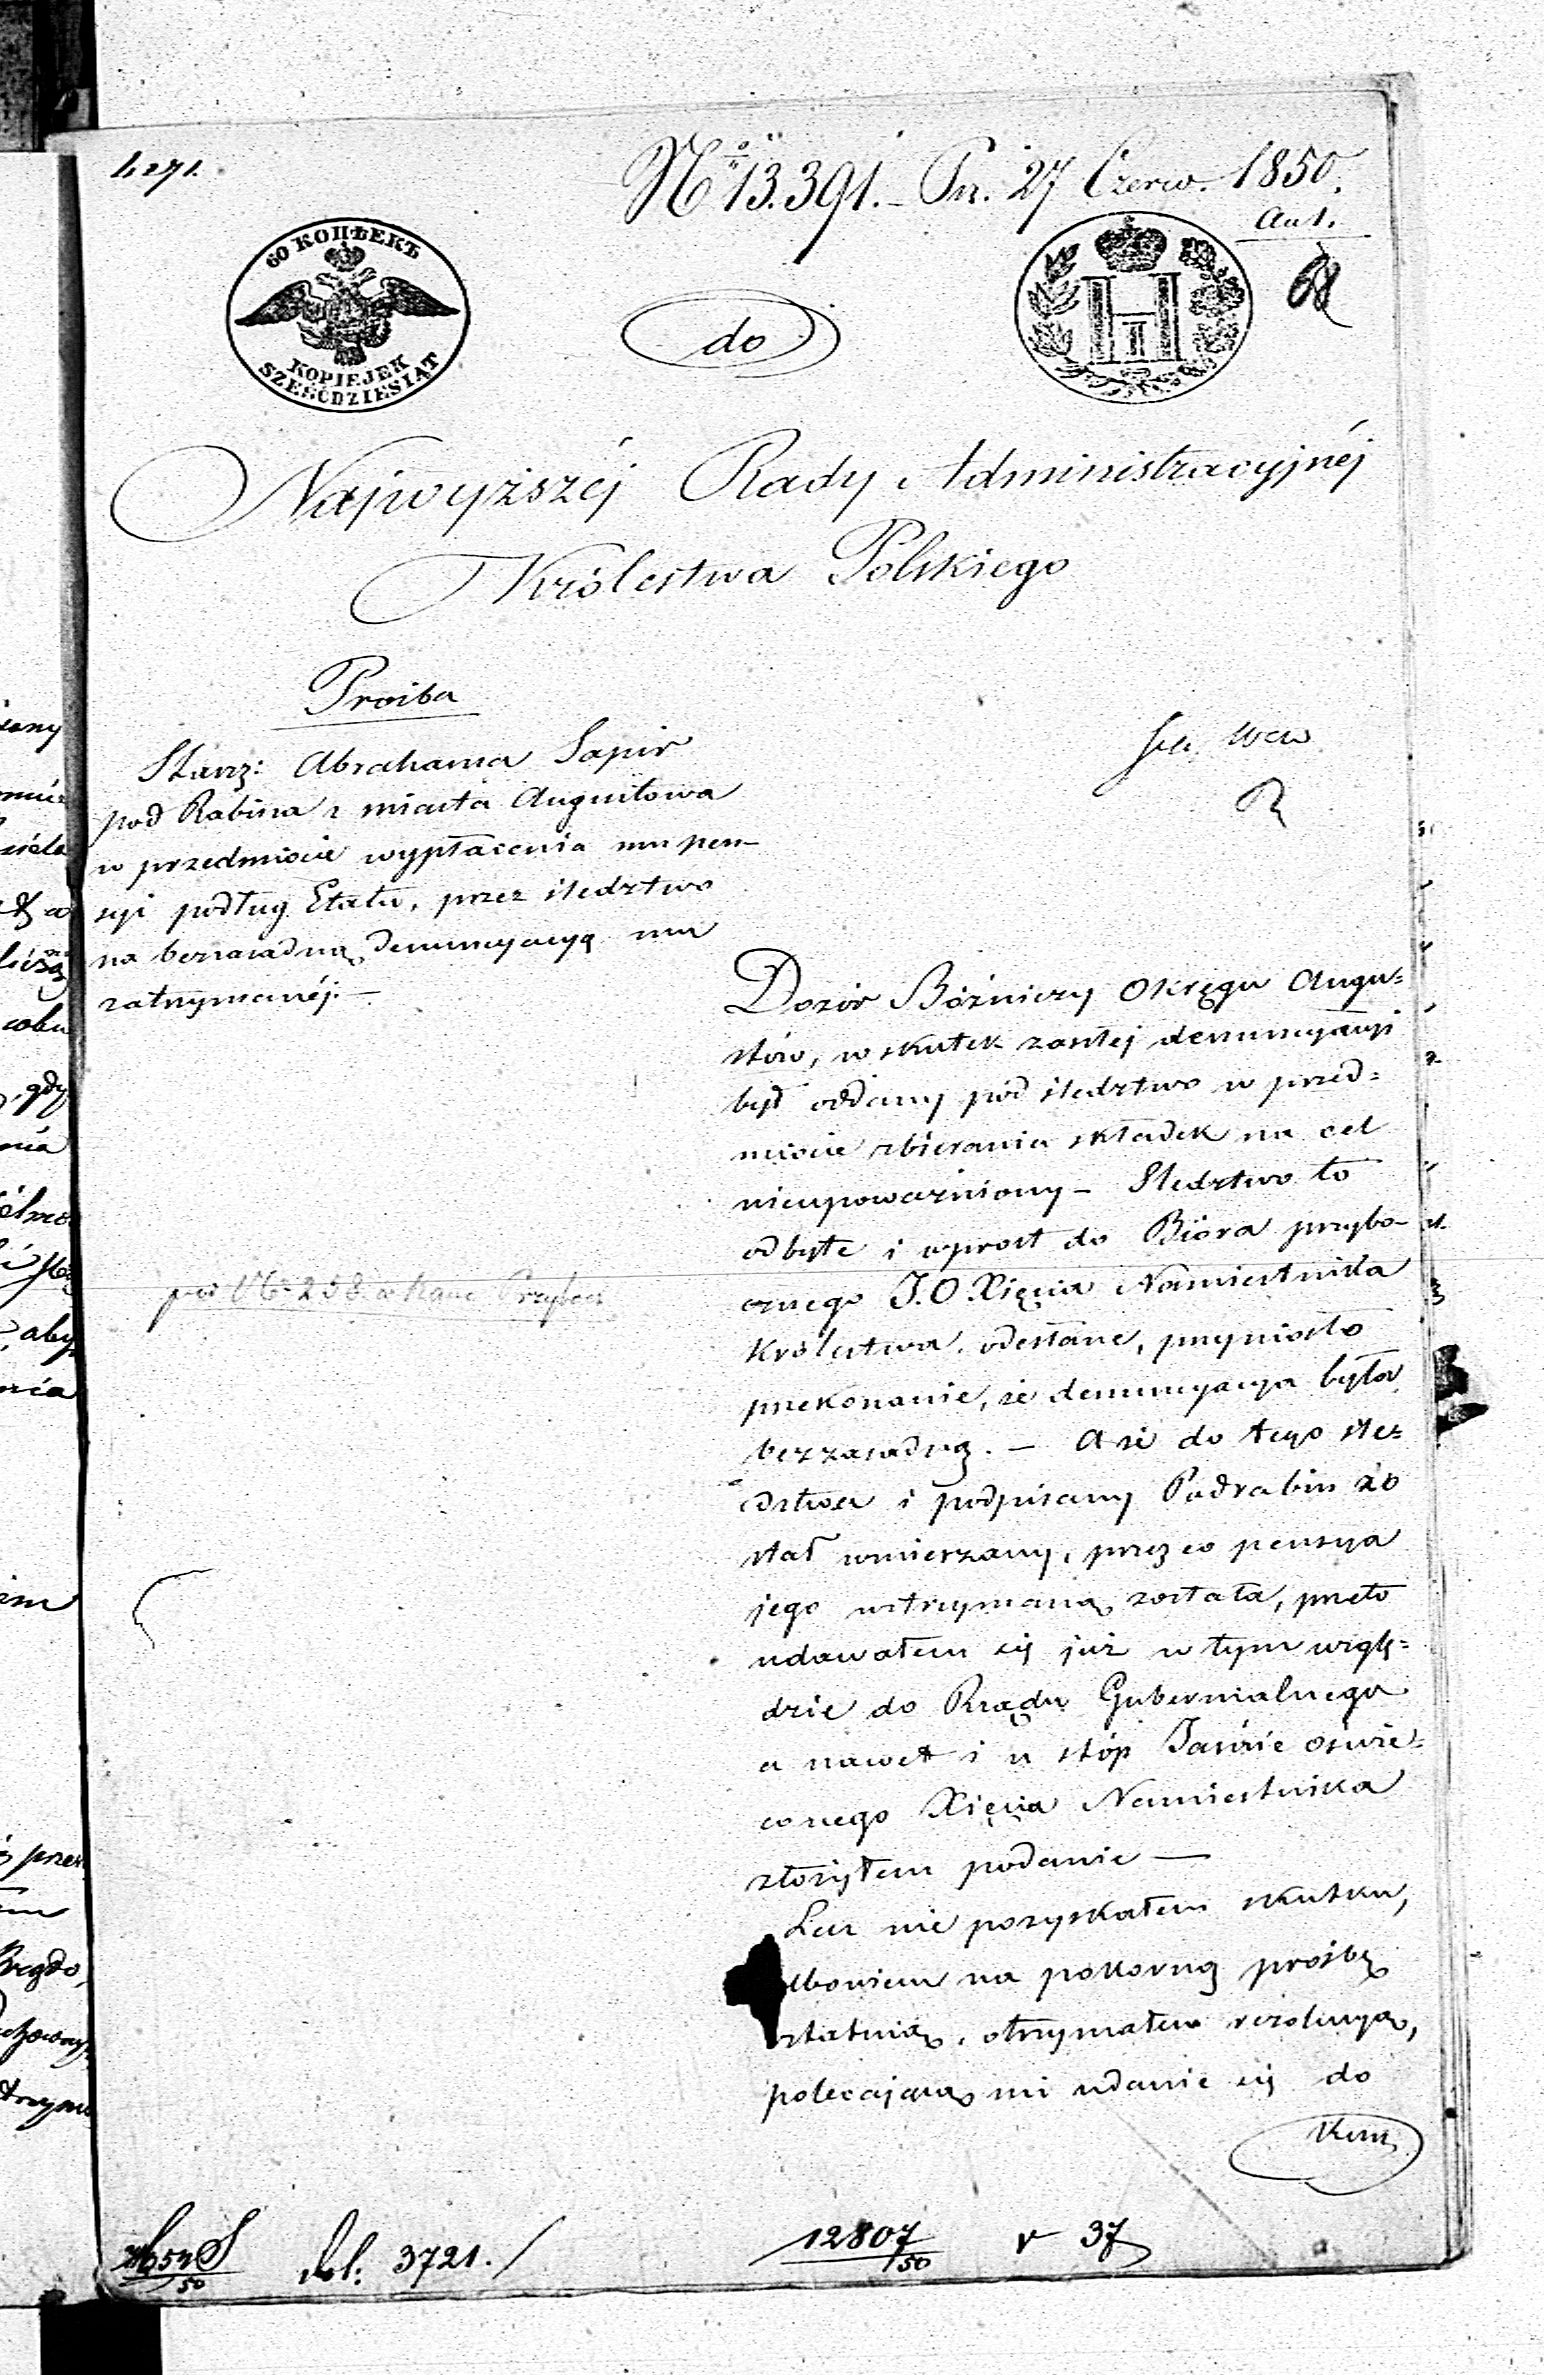 4271.
No 13.391. Pr. 27 Czerw. 1850.
Aut.
68
60 КОПѢЕКЪ
KOPIEJEK
SZEŚĆDZIESIĄT
do
H
I
Najwyższéj Rady Administracyjnéj
Królestwa Polskiego
Prośba
Starz: Abrahama Sapir
pod Rabina z miasta Augustowa
w przedmiocie wypłacenia mu pen-
syi podług Etatu, przez śledztwo
na bezzasadną denuncyacyą mu
zatrzymanéj.—
Dozór Bóźniczy Okręgu Augu=
stów, w skutek zaszłej denuncyacyi
był oddany pod śledztwo w przed=
miocie zbierania składek na cel
nieupoważniony – Sledztwo to
odbyte i wprost do Bióra przybo-
cznego J.O. Xięcia Namiestnika
Królestwa odesłane, przyniosło
przekonanie, że denuncyacya była
bezzasadną. – A że do tego śle=
dztwa i podpisany Podrabin zo
stał wmierzany, przez co pensya
jego wstrzymaną została, przeto
udawałem się już w tym wzglę=
dzie do Rządu Gubernialnego
a nawet i u stóp Jaśnie Oświe=
conego Xięcia Namiestnika
złożyłem podanie —
Lecz nie pozyskałem skutku,
albowiem na pokorną prośbę
ostatnią, otrzymałem rezolucyą,
polecającą mi udanie się do
Kom
pod No 258 w Kanc Przybocz
50
dol: 3721.
12807
/50
v 37